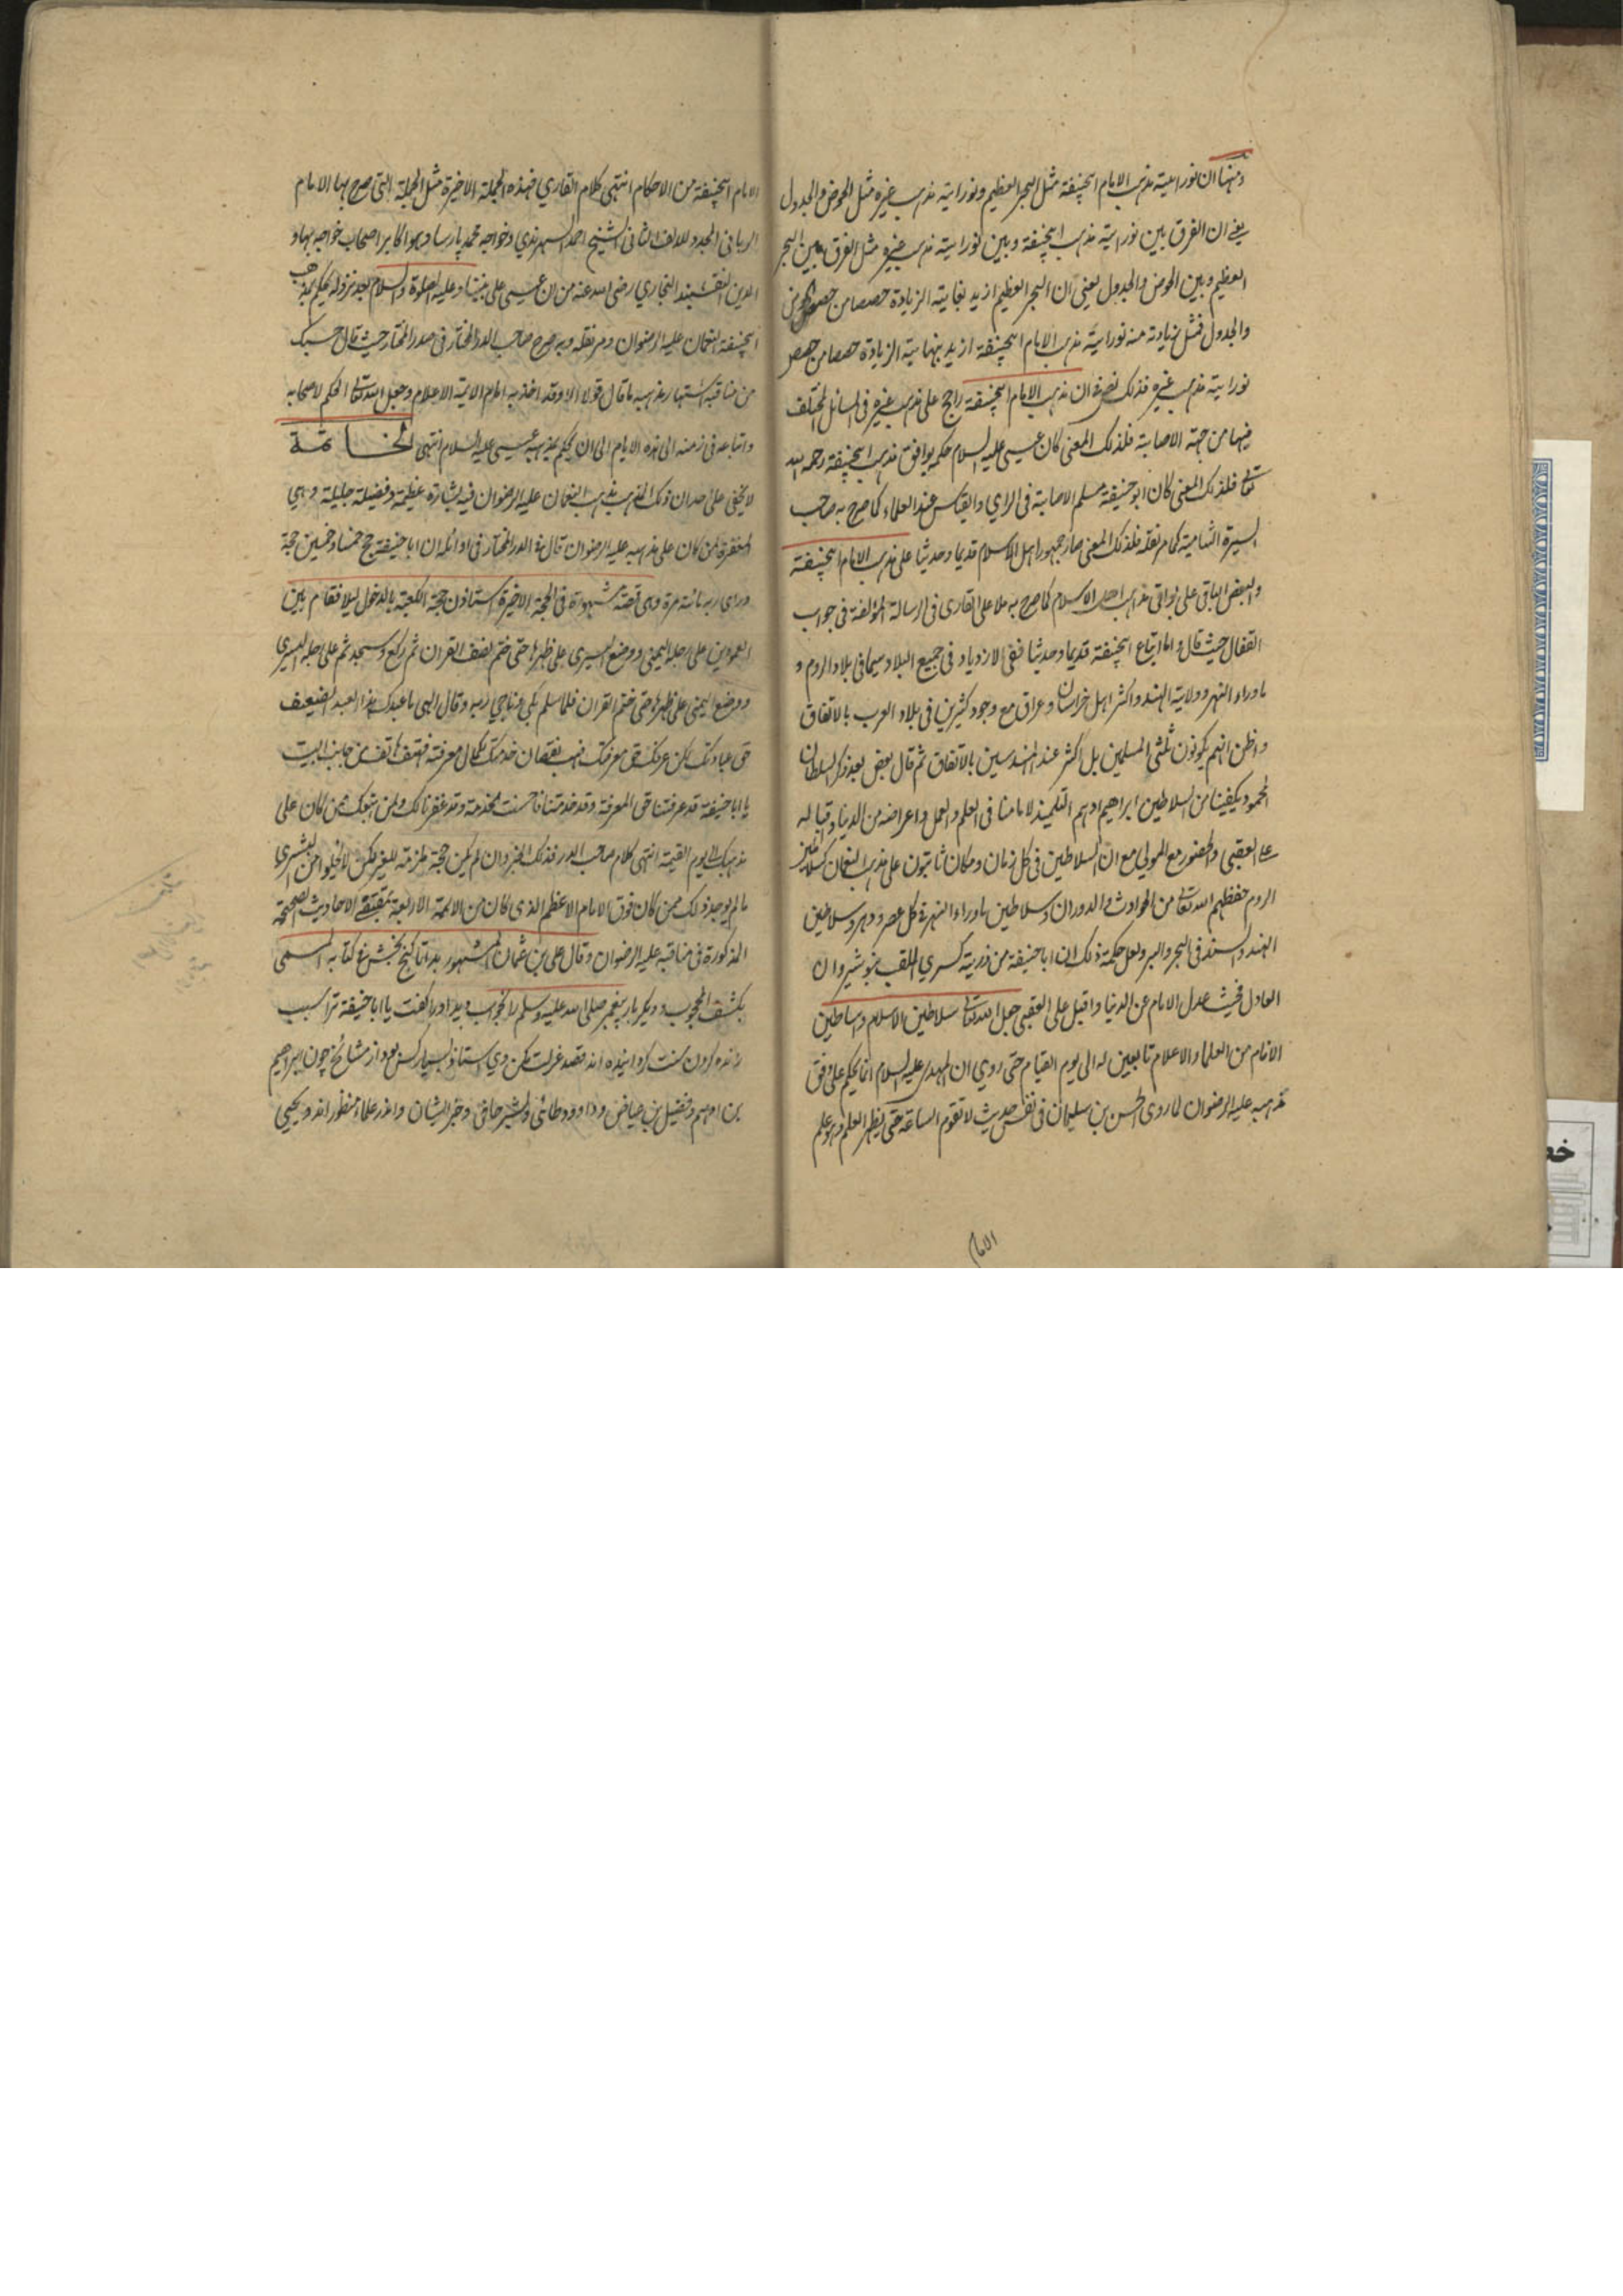 ومنها ان نورانية مذهب الامام ابيحنيفة مثل البحر العظيم ونورانية مذهب غيره مثل الحوض والجدول
يعني ان الفرق بين نورانية مذهب ابيحنيفة وبين نورانية مذهب غيره مثل الفرق ما بين البحر
العظيم وبين الحوض والجدول يعني ان البحر العظيم ازيد بغاية الزيادة حصصا من حصص الحوض
والجدول فمثل زيادته منه نورانية مذهب الامام ابيحنيفة ازيد بنهاية الزيادة حصصا من حصص
نورانية مذهب غيره فذلك ان مذهب الامام ابيحنيفة راجح على مذهب غيره في المسائل المختلف
فيها من جهة الاصابة فلذلك المعنى كان عيسى عليه السلام حكمه يوافق مذهب ابيحنيفة رحمه الله
تعالى فلذلك المعنى كان ابو حنيفة مسلم الاصابة في الراي والقياس عند العلماء كما صرح به صاحب
السيرة الشامية كما مر نقله فلذلك المعنى صار جمهور اهل الاسلام قديما وحديثا على مذهب الامام ابيحنيفة
والبعض الباقي على بواقي مذاهب اهل الاسلام كما صرح به ملا على القاري في الرسالة المؤلفة في جواب
القفال حيث قال واما اتباع ابيحنيفة قديما وحديثا ففي الازدياد في جميع البلاد سيما في بلاد الروم و
ماوراء النهر وولاية الهند واكثر اهل خراسان وعراق مع وجود كثيرين في بلاد العرب بالاتفاق
واظن انهم يكونون ثلثي المسلمين بل اكثر عند المهندسين بالاتفاق ثم قال بعض بعد ذكر السلطان
المحمود يكفينا من السلاطين ابراهيم ادهم التلميذ لامامنا في العلم والعمل واعراضه من الدنيا واقباله
على العقبى والحضور مع المولى مع ان السلاطين في كل زمان ومكان ثابتون على مذهب النعمان كسلاطين
الروم حفظهم الله تعالى من الحوادث والدوران وسلاطين ماوراء النهر في كل عصر ودهر وسلاطين
الهند والسند في البحر والبر ولعل حكمة ذلك ان ابا حنيفة من ذرية كسرى الملقب بنوشيروان
العادل فحيث عدل الامام عن الدنيا واقبل على العقبى جعل الله تعالى سلاطين الاسلام واساطين
الانام من العلماء الاعلام تابعين له الى يوم القيام حتى روي ان المهدي عليه السلام انما يحكم على وفق
مذهبه عليه الرضوان لما روى الحسن بن سليمان في تفسير حديث لا تقوم الساعة حتى يظهر العلم وهو علم
الامام
الامام ابيحنيفة من الاحكام انتهى كلام القاري فهذه الجملة الاخيرة مثل الجملة التي صرح بها الامام
الرباني المجدد للالف الثاني الشيخ احمد السهرندي وخواجه محمد پارسا وهو اكابر اصحاب خواجه بهاو
الدين النقشبند البخاري رضي الله عنه من ان عيسى على نبينا وعليه الصلوة والسلام بعد نزوله يحكم بمذهب
ابيحنيفة النعمان عليه الرضوان ومر نقله وبه صرح صاحب الدر المختار في صدر المختار حيث قال حسبك
من مناقبه اشتهار مذهبه ما قال قولا الا وقد اخذ به امام من الائمة الاعلام وجعل الله تعالى الحكم لاصحابه
واتباعه في زمنه الى هذه الايام الى ان يحكم بمذهبه عيسى عليه السلام انتهى الخاتمة
لا يخفى على احد ان ذلك المذهب مذهب النعمان عليه الرضوان فيه بشارة عظيمة وفضيلة جليلة وهي
المغفرة لمن كان على مذهبه عليه الرضوان قال في الدر المختار في اوائله ان ابا حنيفة حج خمسا وخمسين حجة
وراى ربه مائة مرة وهى قصة مشهورة في الحجة الاخيرة استاذن حجبة الكعبة بالدخول ليلا فقام بين
العمودين على رجله اليمنى ووضع اليسرى على ظهرها حتى ختم نصف القران ثم ركع وسجد ثم على رجله اليسرى
ووضع اليمنى على ظهرها حتى ختم القران فلما سلم بكى وناجى ربه وقال الهى ما عبدك هذا العبد الضعيف
حق عبادتك لكن عرفك حق معرفتك فهب نقصان خدمته لكمال معرفته فهتف هاتف من جانب البيت
يا ابا حنيفة قد عرفتنا حق المعرفة وقد خدمتنا فاحسنت الخدمة وقد غفرنا لك ولمن اتبعك ممن كان على
مذهبك الى يوم القيمة انتهى كلام صاحب الدر فذلك الخبر وان لم يكن حجة ملزمة للغير لكن لا يخلوا من البشرى
ما لم يوجد ذلك ممن كان فوق الامام الاعظم الذي كان من الائمة الاربعة بمقتضى الاحاديث الصحيحة
المذكورة في مناقبه عليه الرضوان وقال على بن عثمان المشهور بداتا گنج بخش في كتابه المسمى
بكشف المحجوب وديگر بار پيغمبر صلى الله عليه وسلم را بخواب ديد اورا گفت يا ابا حنيفة ترا سبب
زنده كردن سنت گردانيده اند قصد عزلت مكن وي استاذ بسيار كس بود از مشائخ چون ابراهيم
بن ادهم وفضيل بن عياض وداوود طائي وبشر حافي وجز ايشان واندر علماء منظور اند ويحيى